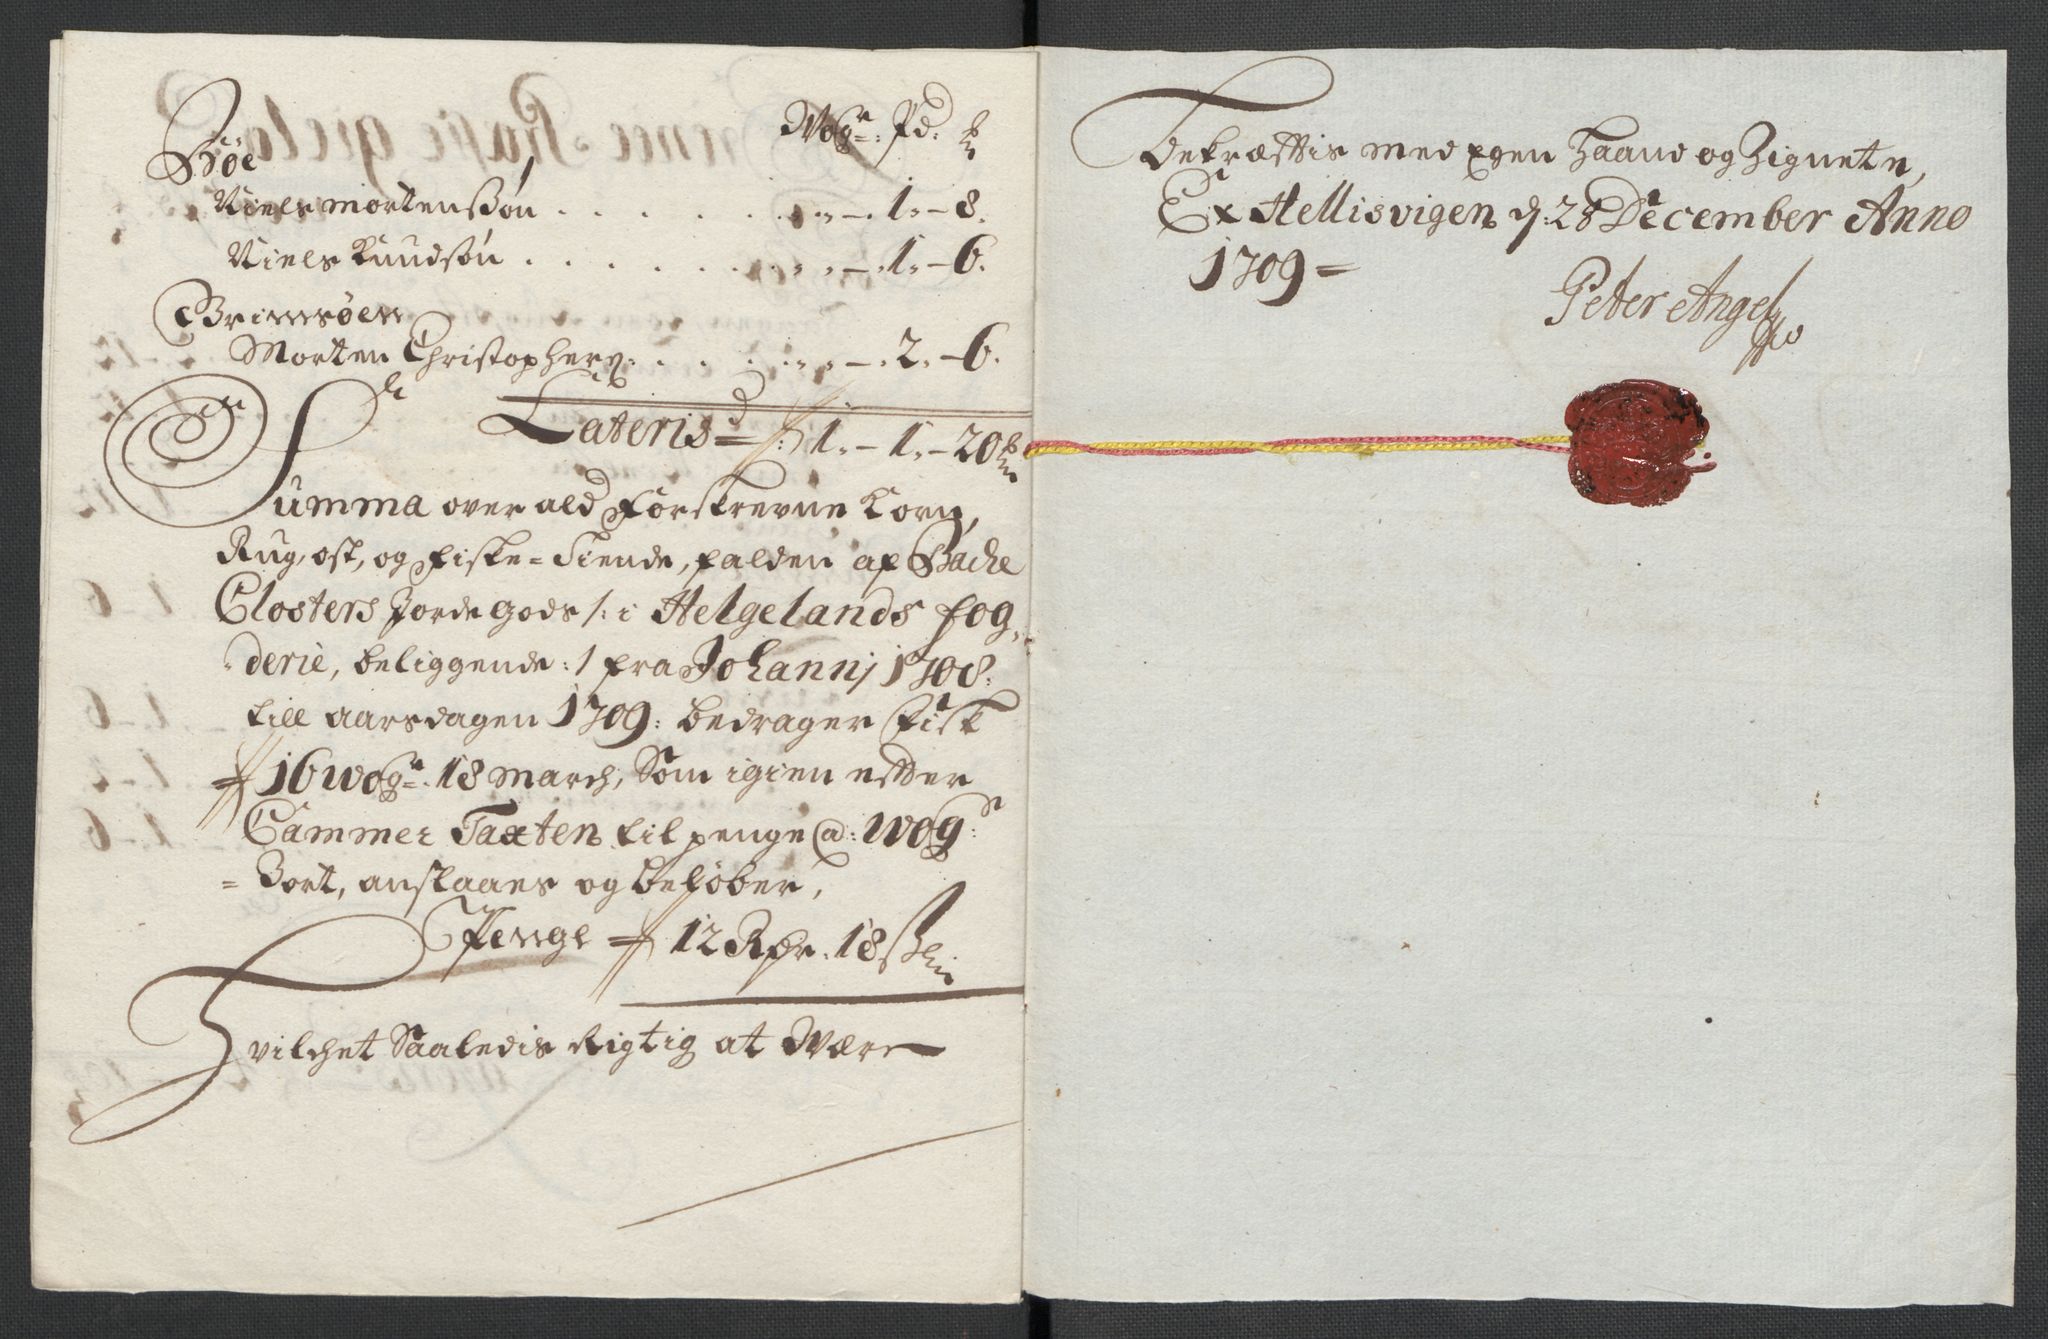 Wogr: Pd: ℔
Bøe
Niels Mortensøn . . . . . . . „ – 1. – 8.
Niels Knudsøn . . . . . . . „ – 1. – 6.
Grimsøen
Morten Christophers: . . . . „ – 2. – 6.
Lateris = 1. – 1. – 20 ℔
Summa over ald forskrevne Korn,
Rug, ost, og fiske = Tiende, falden af Bache
Closters Jordegods /: i Helgelands fog„
derie, beliggende :/ fra Johannj 1708:
till aarsdagen 1709: bedrager Fisk
16 wogr: 18 march, Som igien effter
Cammer Taxten til penge @: wog:
= 3ort, anslaaes og beløber,
Penge 12 Rdr. 18 s
Hvilchet Saaledis Rigtig at Være
Bekræfftis med egen Haand og Zignete,
Ex Hellisvigen d: 28 December Anno
1709 =
Peter Angel